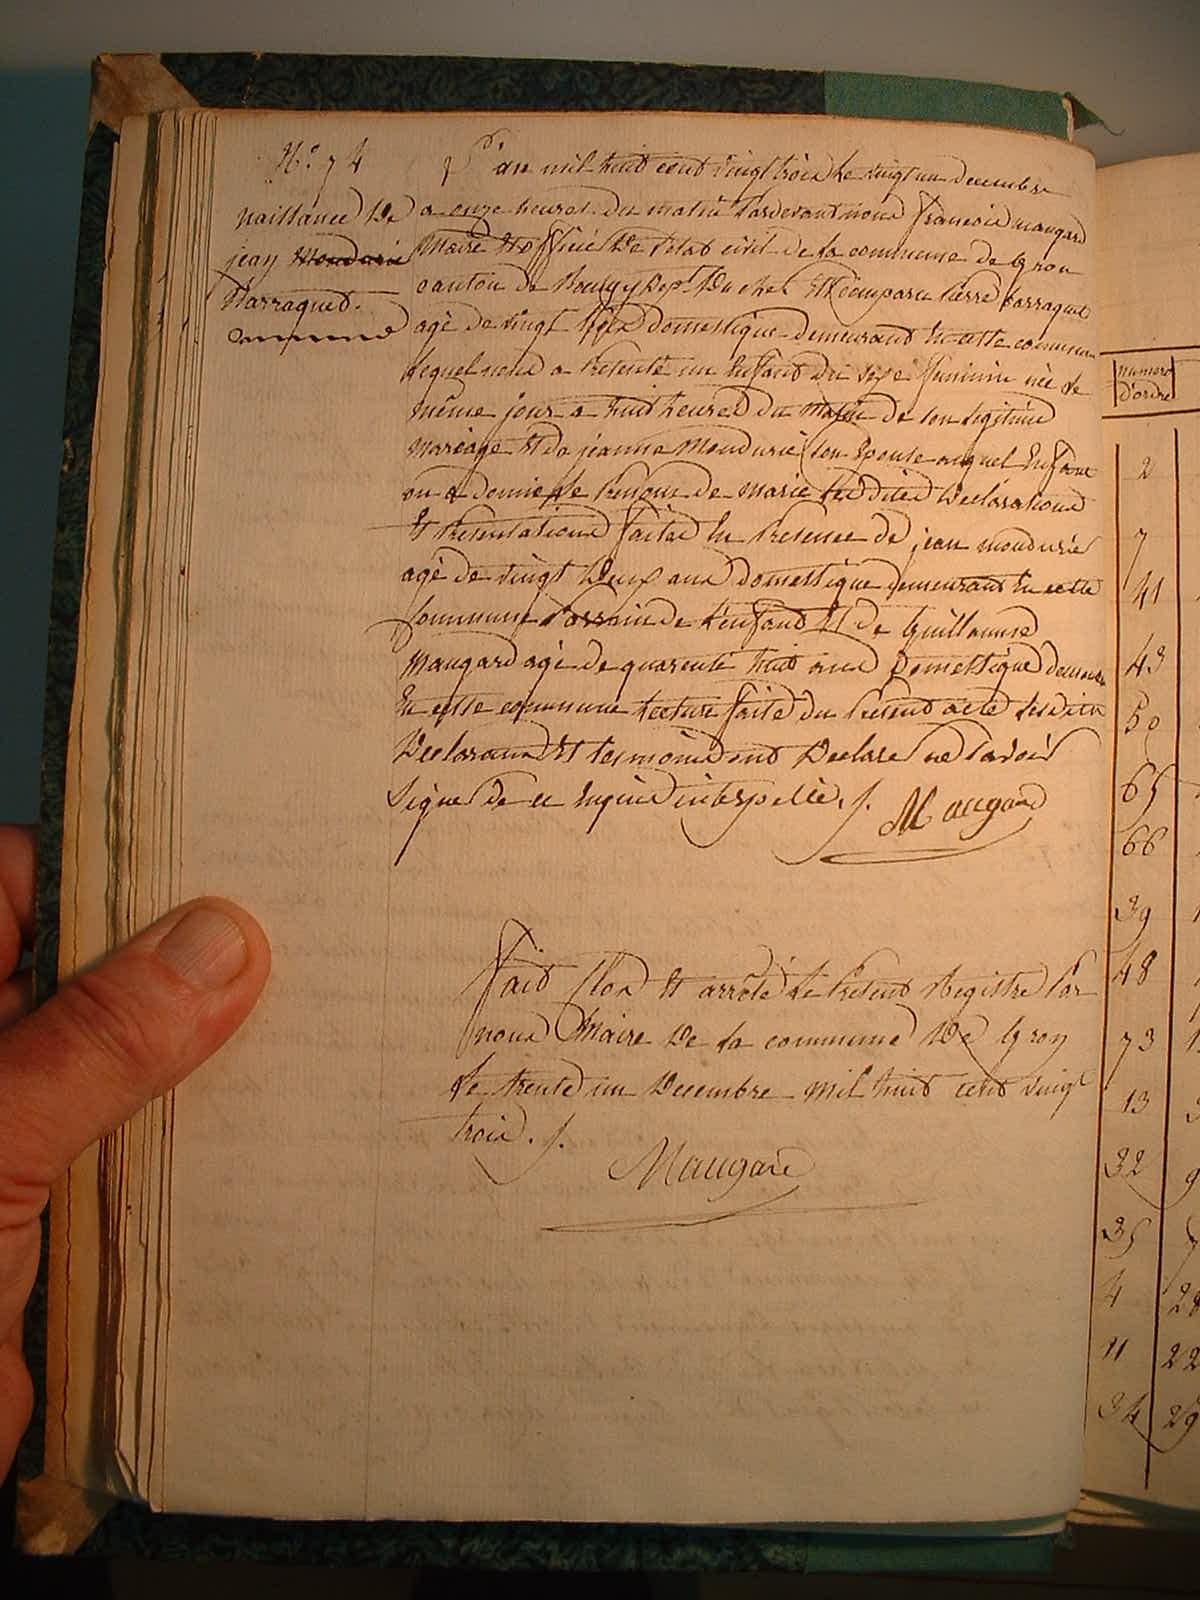 N.º 74
naissance de
jean Mondurié
Barraqued.
L'an mil huit cent vingt trois le vingt un decembre
a onze heures du matin Pardevant nous françois maugard
Maire Et officié De l'etat civil de la commune de gron
canton de Baugy Dep.t Du cher Est comparu Pierre barraqued
agé de vingt domestique demeurant En cette commune
lequel nous a Présenté un Enfant du sexe feminin née le
même jour a huit heures du matin de son legitime
mariage Et de jeanne Mondurié son Epouse auquel Enfant
on a donné le Prenom de marie lesdites Declarations
Et Présentations faites En Présence de jean mondurié
agé de vingt deux ans domestique demeurant En cette
Commune Parrain de l'enfant Et de Guillaume
Maugard agé de quarente huit ans Domestique demeurant
En cette commune lecture faite du Présent acte lesdits
Declarant Et temoins ont Declaré ne savoir
Signer de ce Enquis interpellé. /. Maugard
fait Clos Et arrêté le Présent Registre Par
nous Maire De la commune De gron
le trente un Decembre mil huit cent vingt
trois. /.
Maugard
numero
d'ordre
2
7
41
43
50
65
66
39
48
73
13
32
35
4
11
22
34
29